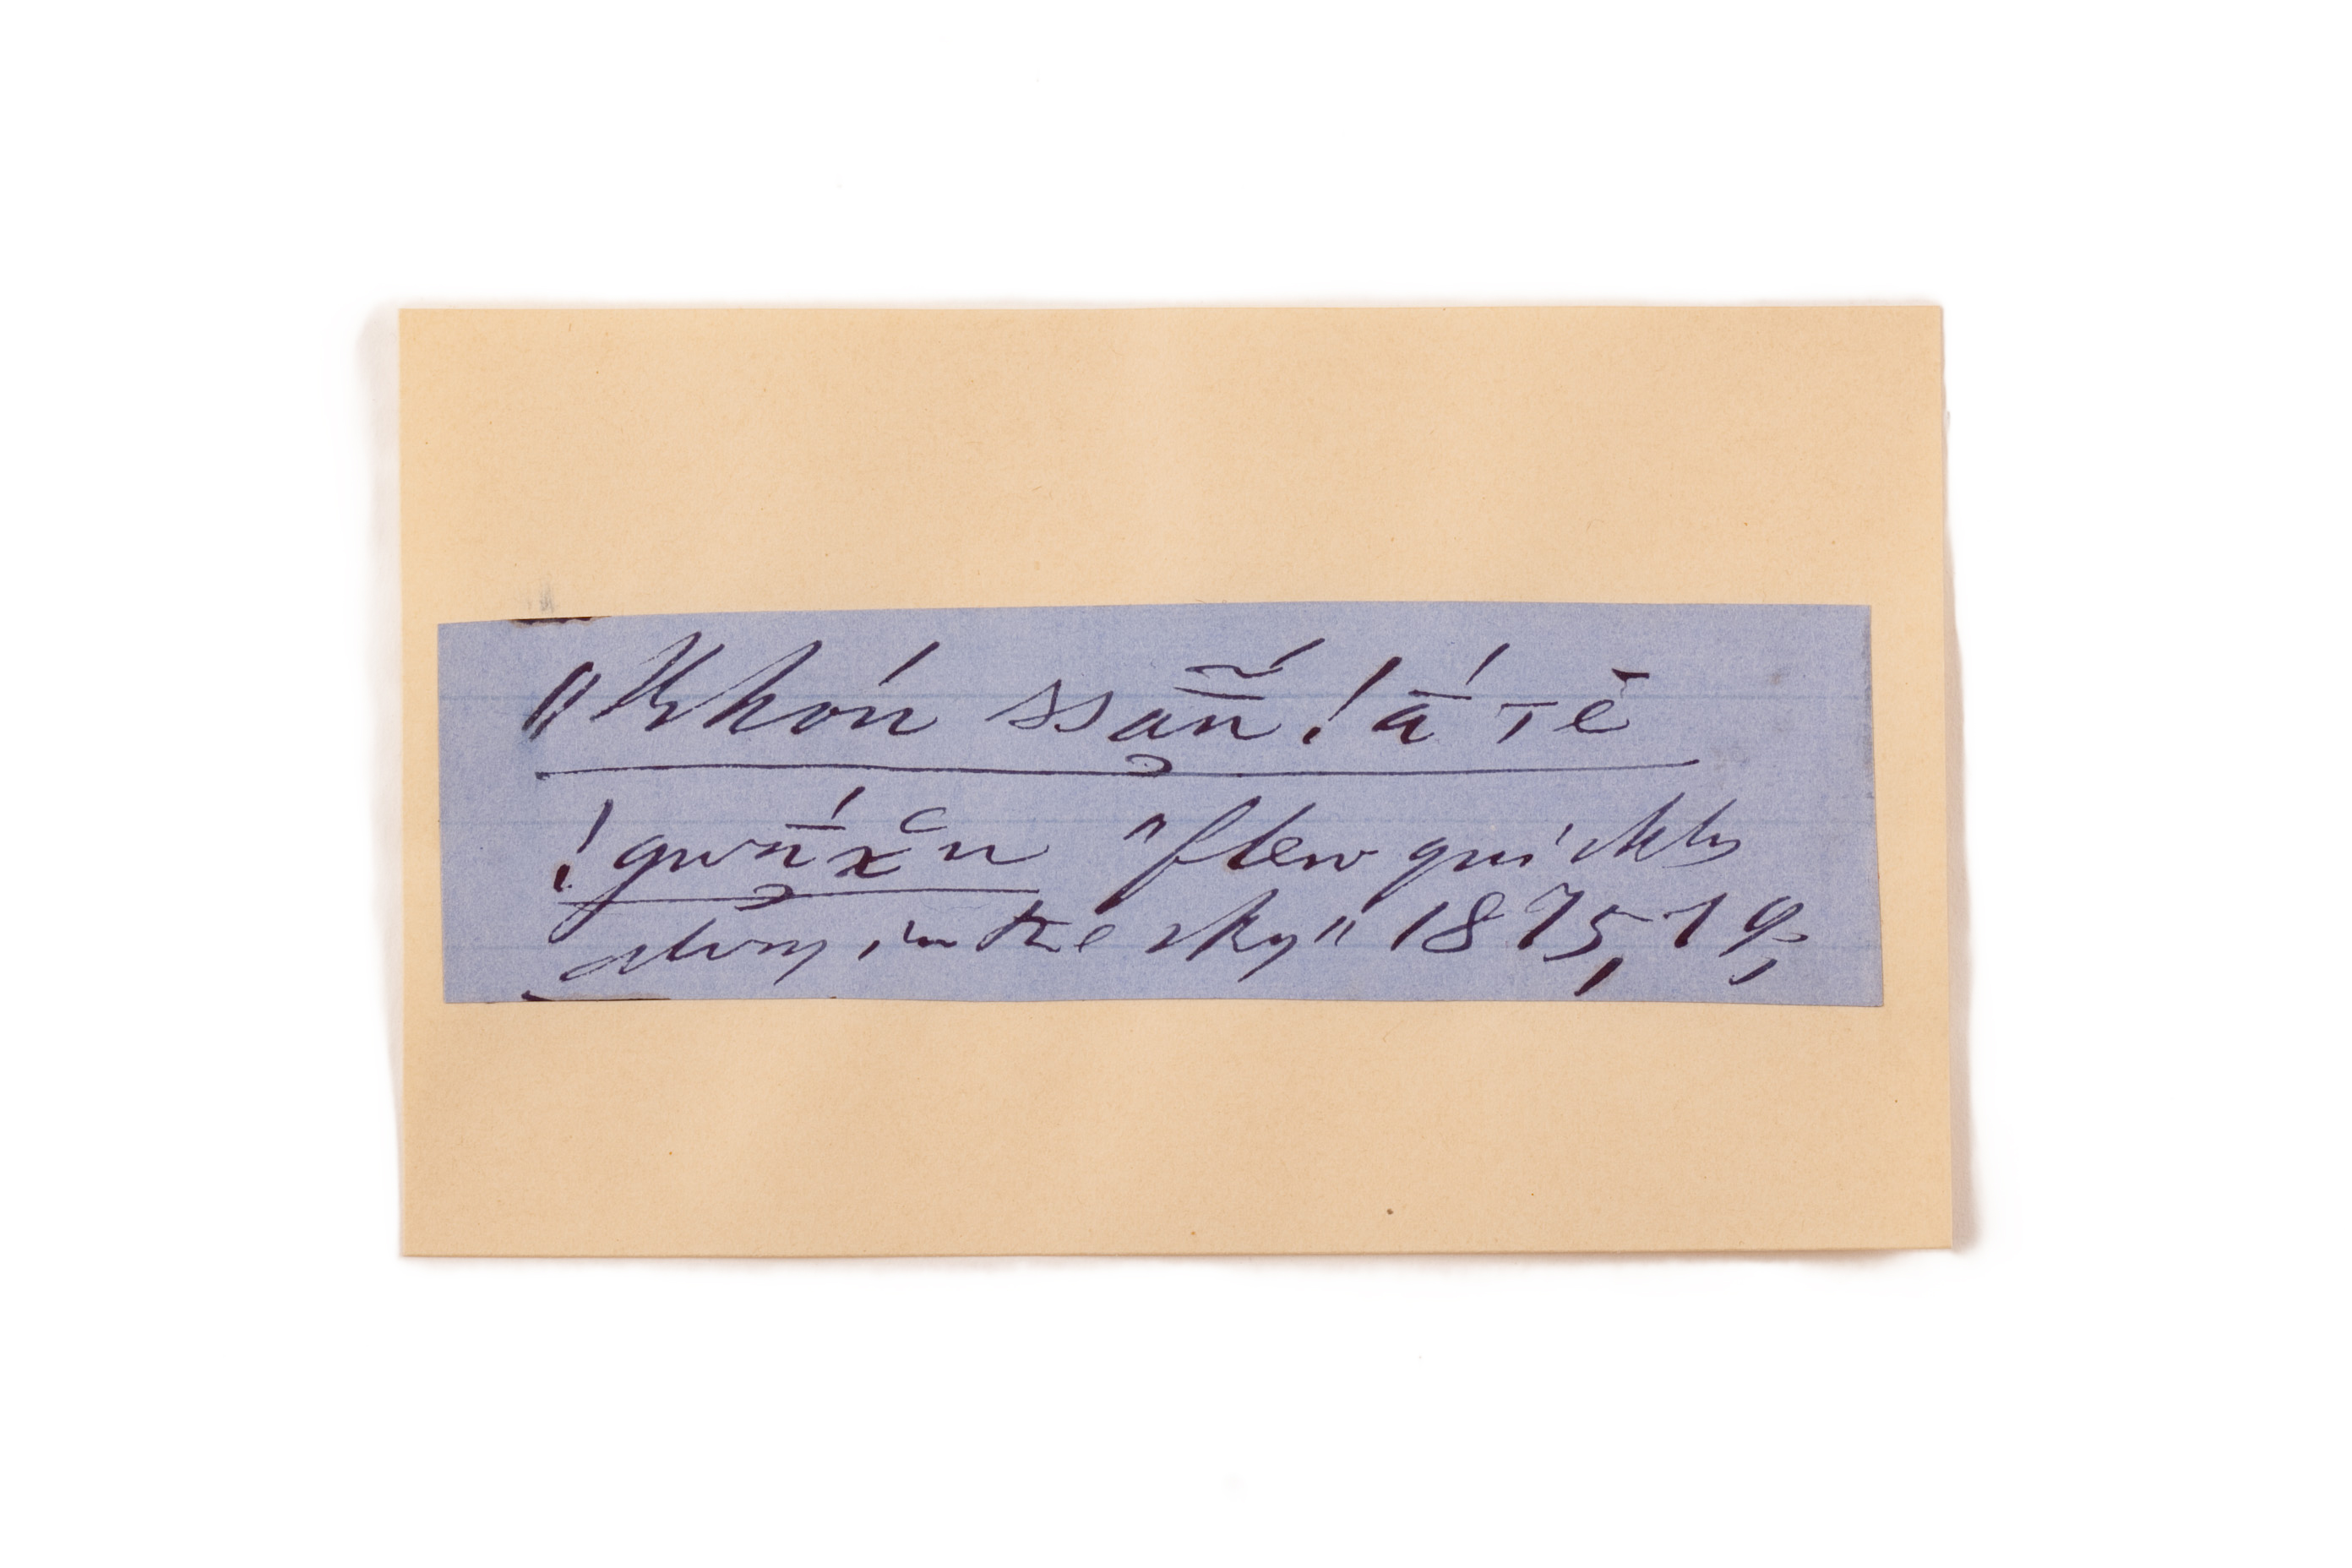 ǁkhóń ssa̰̱ñ́ !ā́ tĕ
!gwṉ̄́χĕn "flew quickly
along in the sky" 1875, 79,